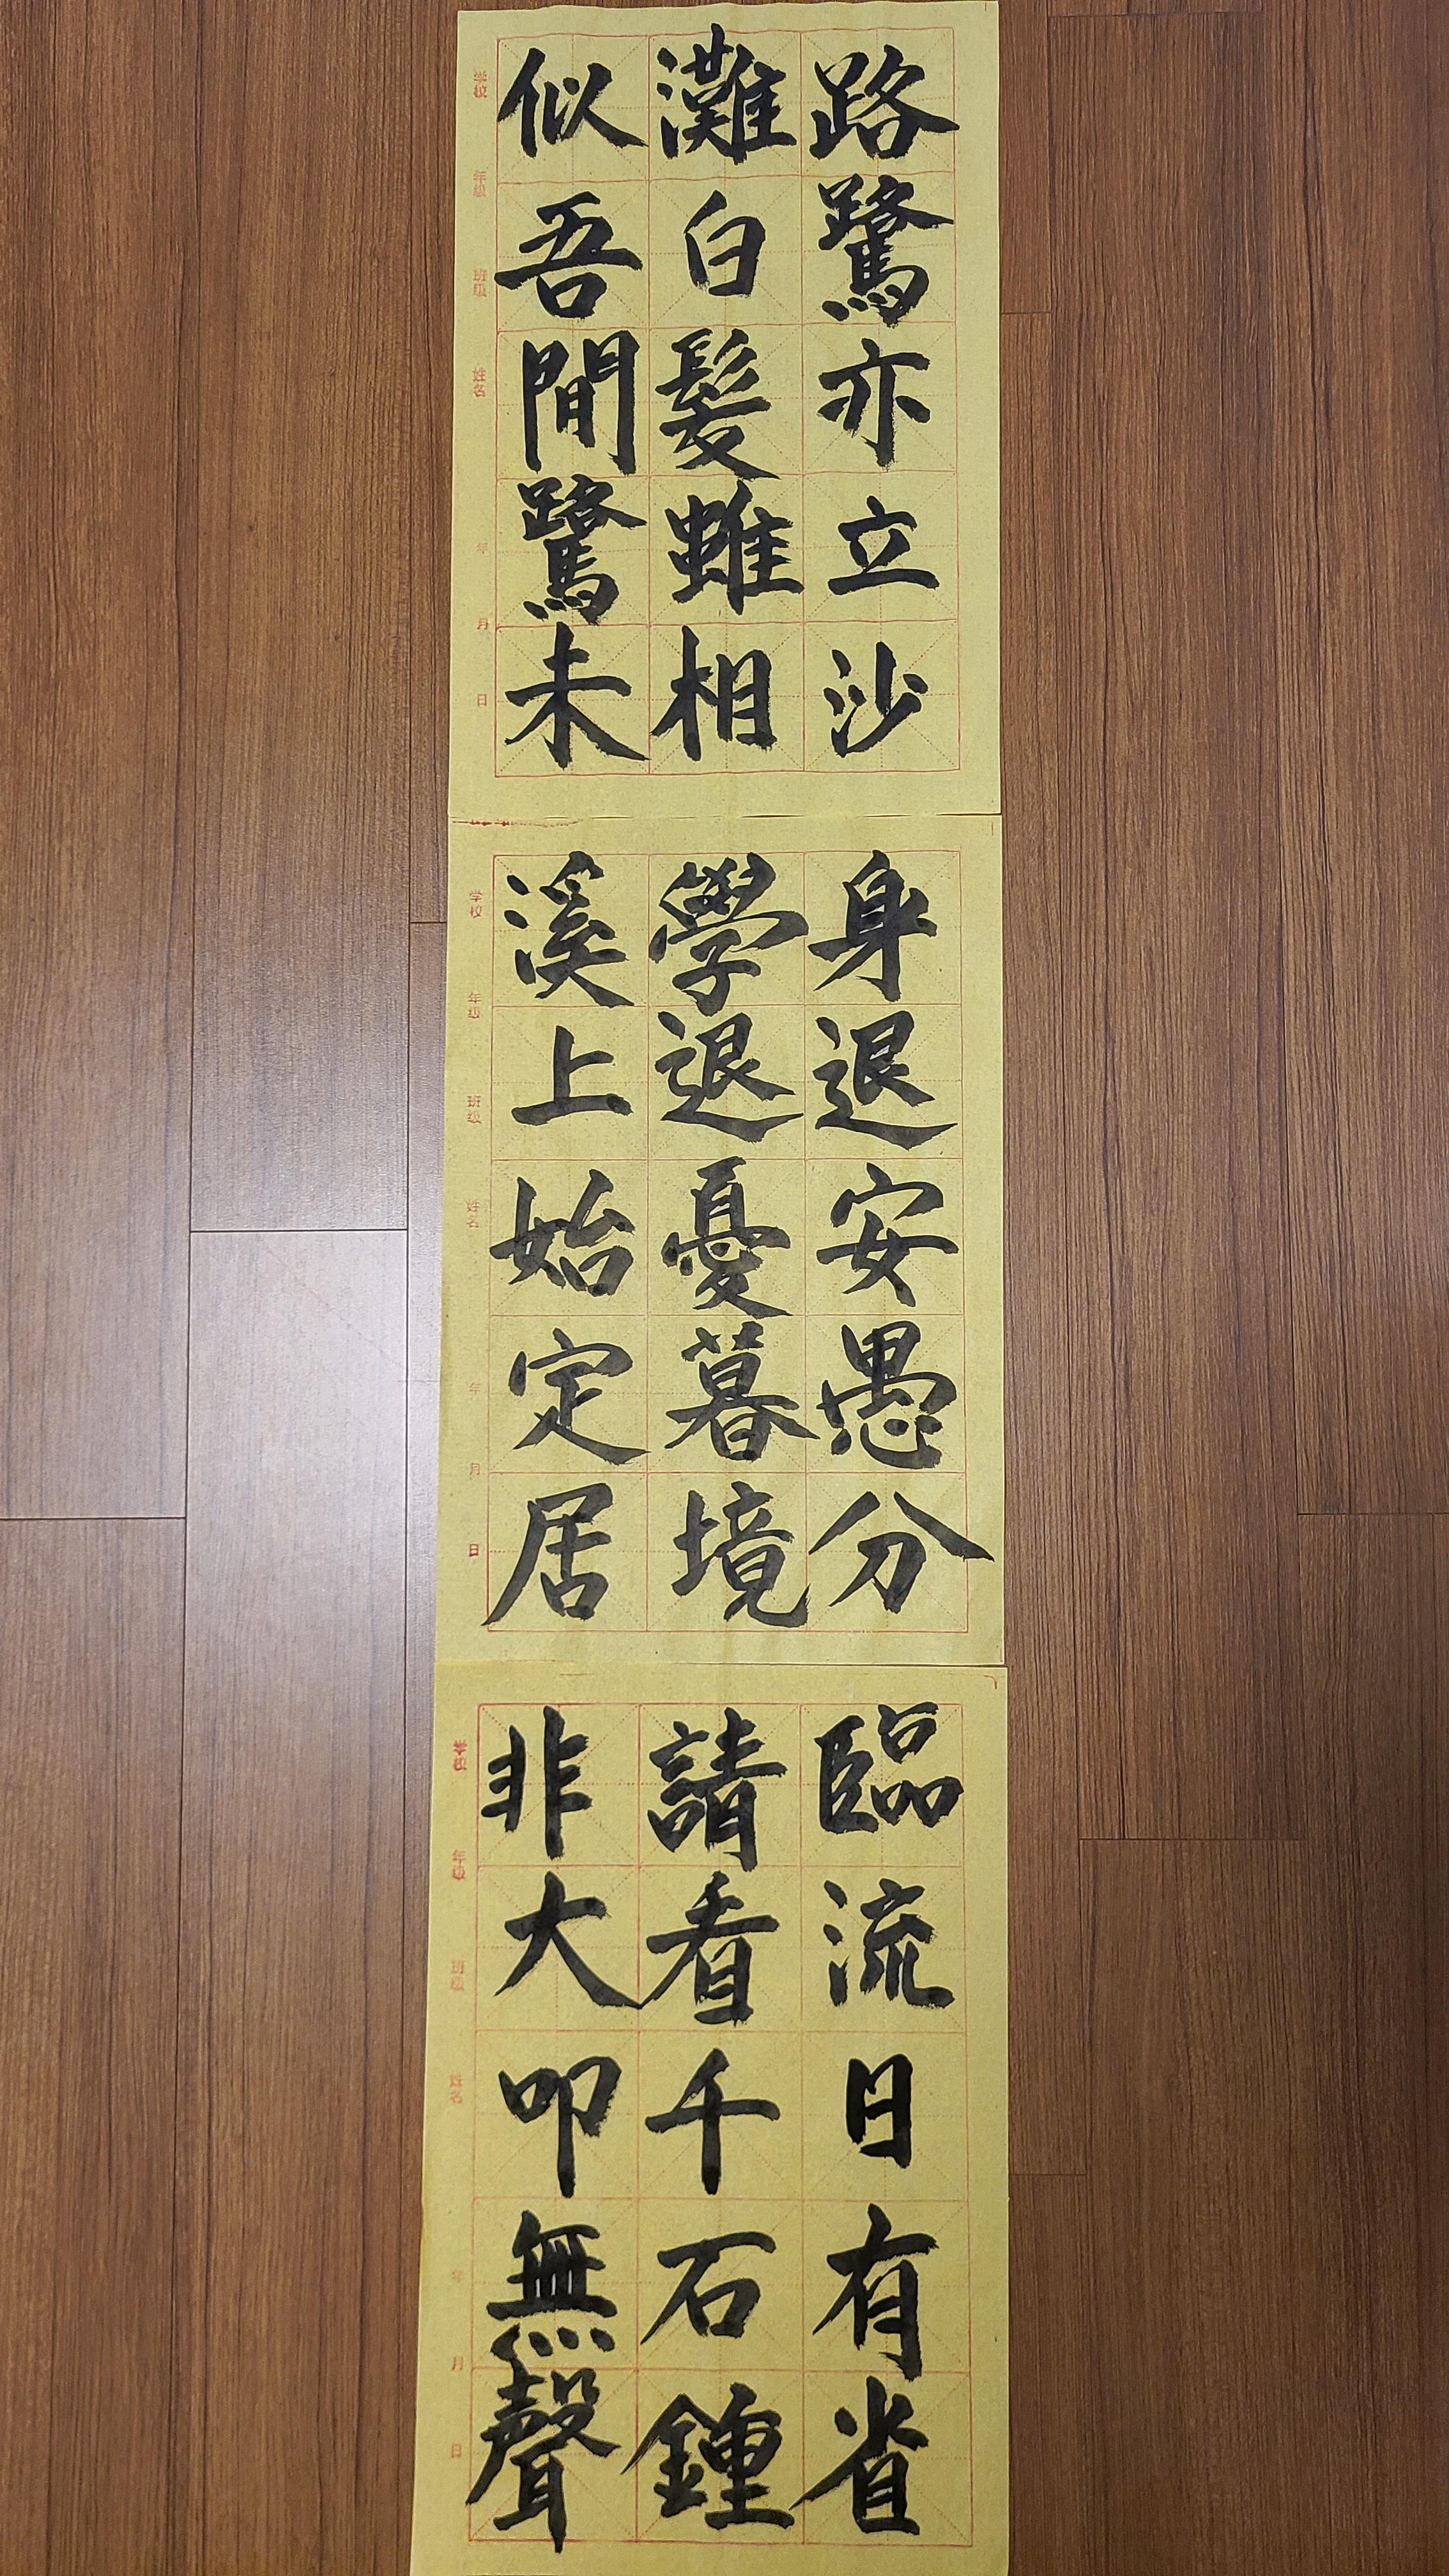 路鷺亦立沙
灘白髮雖相
似吾閒鷺未
学校 年级 班级 姓名 年 月 日
身退安愚分
學退憂暮境
溪上始定居
学校 年级 班级 姓名 年 月 日
臨流日有省
請看千石鍾
非大叩無聲
学校 年级 班级 姓名 年 月 日